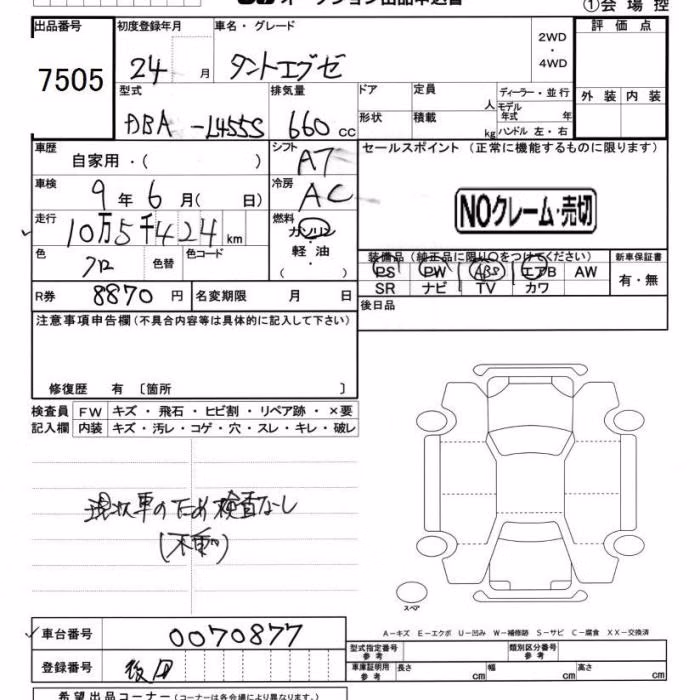 オークション出品申込書
①会場控
出品番号
7505
初度登録年月
24 月
車名・グレード
タントエグゼ
2WD
・
4WD
評価点
外装 内装
型式
DBA -L455S
排気量
660 cc
ドア
定員 人
形状
積載 kg
ディーラー・並行
モデル年式 年
ハンドル 左・右
車歴
自家用・( )
シフト
AT
セールスポイント (正常に機能するものに限ります)
NOクレーム・売切
車検
9年6月( 日)
冷房
AC
走行
10万5千424 km
燃料
ガソリン
・
軽油
・
( )
色
クロ
色替
色コード
装備品 (純正品に限り○をつけてください)
PS PW ABS エアB AW
SR ナビ TV カワ
新車保証書
有・無
R券
8870 円
名変期限 月 日
後日品
注意事項申告欄(不具合内容等は具体的に記入して下さい)
修復歴 有 〔箇所 〕
検査員記入欄
FW キズ・飛石・ヒビ割・リペア跡・×要
内装 キズ・汚レ・コゲ・穴・スレ・キレ・破レ
現状車のため検査なし
(不動)
スペア
A-キズ E-エクボ U-凹み W-補修跡 S-サビ C-腐食 XX-交換済
車台番号
0070877
登録番号
後日
型式指定番号 参考
類別区分番号 参考
車庫証明用 参考
長さ cm 幅 cm 高さ cm
希望出品コーナー(コーナーは各会場により異なります。)